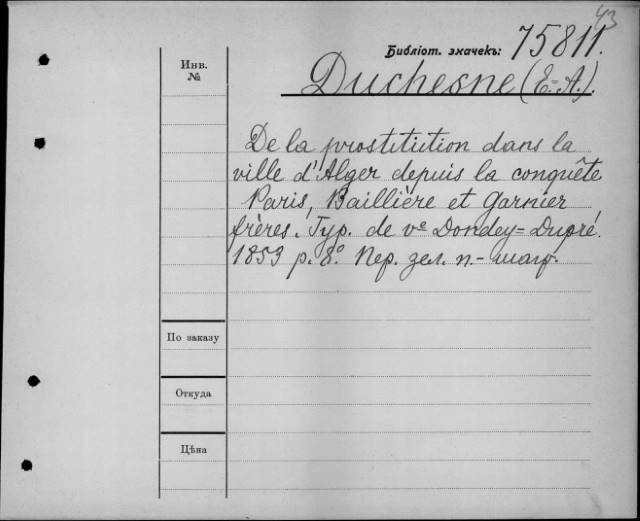 43
Библіот. значекъ: 75811.
Инв. №
Duchesne (E.-A.).
De la prostitution dans la
ville d'Alger depuis la conquête
Paris, Baillière et Garnier
frères. Typ. de vᵉ Dondey=Dupré.
1853 p. 8.° Пер. зел. п.-шагр.
По заказу
Откуда
Цѣна